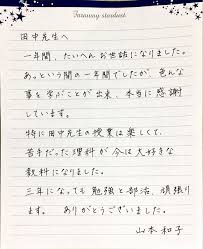 Faraway stardust
田中先生へ
一年間、たいへんお世話になりました。
あっという間の一年間でしたが、色んな
事を学ぶことが出来、本当に感謝
しています。
特に田中先生の授業は楽しくて、
苦手だった理科が今は大好きな
教科になりました。
三年になっても勉強と部活、頑張り
ます。ありがとうございました。
山本和子